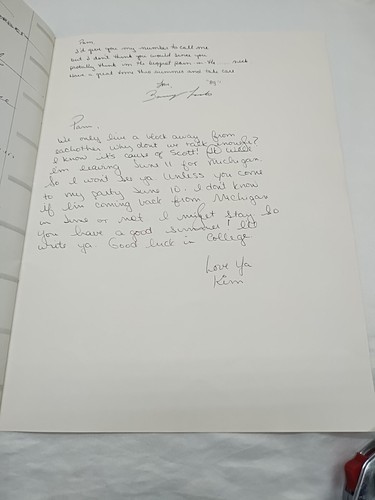 Pam,
I'd give you my number to call me
but I don't think you would since you
probably think I'm the biggest pain in the ....neck
Have a great term this summer and take care
Love, "89"
Pam,
We only live a block away from
eachother why don't we talk enough?
I know it's cause of Scott!
I'm leaving June 11 for Michigan
So I won't see ya unless you come
to my party June 10. I don't know
if I'm coming back from Michigan
in June or not I might stay. So
you have a good summer I'll
write ya. Good luck in College
Love Ya
Kim